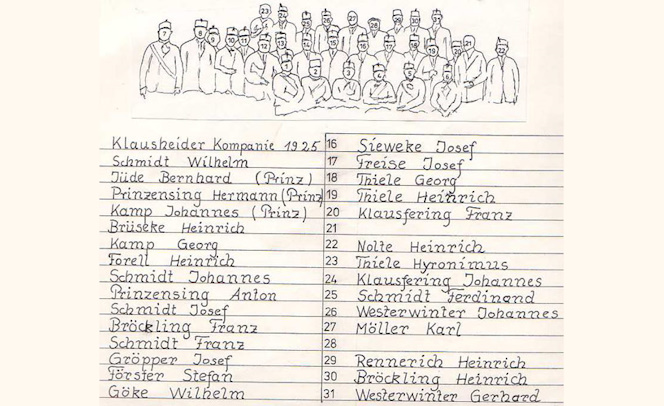 Klausheider Kompanie 1925
Schmidt Wilhelm
Jüde Bernhard (Prinz)
Prinzensing Hermann (Prinz)
Kamp Johannes (Prinz)
Brüseke Heinrich
Kamp Georg
Forell Heinrich
Schmidt Johannes
Prinzensing Anton
Schmidt Josef
Bröckling Franz
Schmidt Franz
Gröpper Josef
Förster Stefan
Göke Wilhelm
16 Sieweke Josef
17 Freise Josef
18 Thiele Georg
19 Thiele Heinrich
20 Klausfering Franz
21
22 Nolte Heinrich
23 Thiele Hyronimus
24 Klausfering Johannes
25 Schmidt Ferdinand
26 Westerwinter Johannes
27 Möller Karl
28
29 Rennerich Heinrich
30 Bröckling Heinrich
31 Westerwinter Gerhard